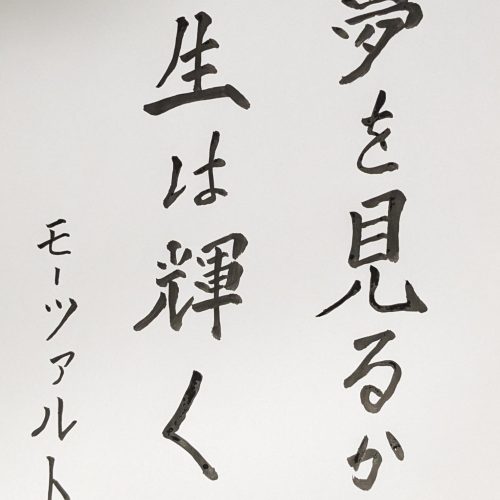 夢を見るか
生は輝く
モーツァルト